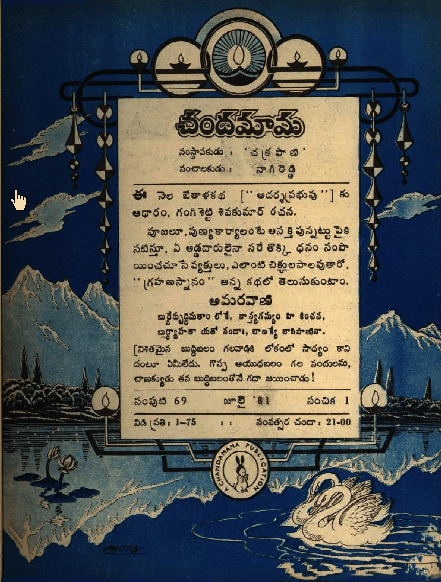 చందమామ
సంస్థాపకుడు : ' చక్రపాణి '
సంచాలకుడు : నాగిరెడ్డి
ఈ నెల బేతాళకథ ["ఆదర్శప్రభువు"] కు
ఆధారం, గంగిశెట్టి శివకుమార్ రచన.
పూజలూ, పుణ్యకార్యాలంటే ఆసక్తి వున్నట్టు పైకి
నటిస్తూ, ఏ అడ్డదారులైనా సరే తొక్కి ధనం సంపా
యించచూసే వ్యక్తులు, ఎలాంటి చిక్కులపాలవుతారో,
"గ్రహణస్నానం" అన్న కథలో తెలుసుకుంటాం.
అమరవాణి
బుద్ధేర్బుద్ధిమతాం లోకే, నాస్త్యగమ్యం హి కించన,
బుద్ధ్యా హతా యతో నందాః, చాణక్యే
[నిశితమైన బుద్ధిబలం గలవాడికి లోకంలో సాధ్యం కాని
దంటూ ఏమీలేదు. గొప్ప ఆయుధబలం గల నందులను,
చాణక్యుడు తన బుద్ధిబలంతోనే గదా జయించాడు !
సంపుటి 69 జూలై '81 సంచిక 1
విడి ప్రతి : 1-75 : : సంవత్సర చందా : 21-00
A CHANDAMAMA PUBLICATION